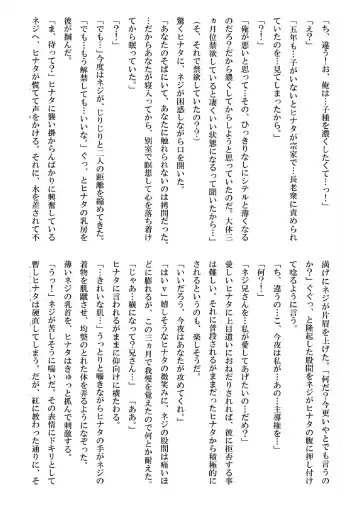 「ち、違う！お、俺は…子種を濃くしたくて…っ！」
「え？」
「五年も…子がいないとヒナタが宗家で…長老衆に責められ
ていたのを…見てしまったから」
「！」
「俺が悪いと思って…その、ひっきりなしにシテルと薄くなる
のだろう？だから濃くしてからしようと思っていたのだ。大体三
ヵ月位禁欲していると凄くいい状態になるって聞いたから…！」
（そ、それで禁欲していたの？？）
驚くヒナタに、ネジが困惑しながら口を開いた。
「あなたのそばにいて、あなたに触れられないのは拷問だった。
…だからあなたが寝入ってから、別室で瞑想して心を落ち着け
てから眠っていた。」
「？！」
「でも…」今度はネジが、じりじりと二人の距離を縮めてきた。
「でも…もう解禁しても…いいな。」ぐっ、とヒナタの乳房を
彼が掴んだ。
「ま、待って？」ヒナタに襲い掛からんばかりに興奮している
ネジへ、ヒナタが慌てて声をかける。それに、水を差されて不
満げにネジが片眉を上げた。「何だ？今更いやとでも言うの
か？」ぐぐっ、と隆起した股間をネジがヒナタの腹に押し付け
て唸るように言う。
「ち、違うの…こ、今夜は私が…あの…主導権を…」
「何？！」
「ネジ兄さんを…私が愛してあげたいの…だめ？」
愛しいヒナタに上目遣いにおねだりされれば、彼に拒否する事
は難しい。それに普段されるがままだったヒナタから積極的に
されるというのも、楽しそうだ。
「いいだろう、今夜はあなたが攻めてくれ。」
「はい♡」嬉しそうなヒナタの微笑みに、ネジの股間は痛いほ
どに膨れるが、この三カ月で我慢を覚えたので何とか耐えた。
「じゃあ…横になって？兄さん…」「ああ。」
ヒナタに言われるがままに仰向けに横たわる。
「きれいな肌…」うっとりと囁きながらヒナタの手がネジの
着物を肌蹴させ、均整のとれた体を弄るようになぞった。
薄いネジの乳首を、ヒナタはきゅっと抓んで刺激する。
「うっ！」ネジが苦しそうに喘いだ。その表情にドキリとして
暫しヒナタは硬直してしまう。だが、紅に教わった通りに、そ